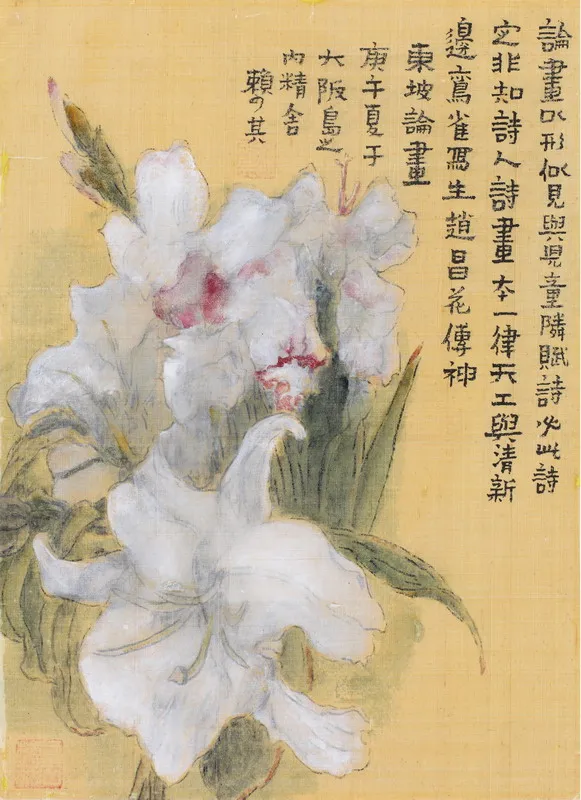 論畫以形似見與兒童隣賦詩必此詩
定非知詩人詩畫本一律天工與清新
邊鸞雀寫生趙昌花傳神
東坡論畫
庚午夏于
大阪島之
内精舍
賴少其